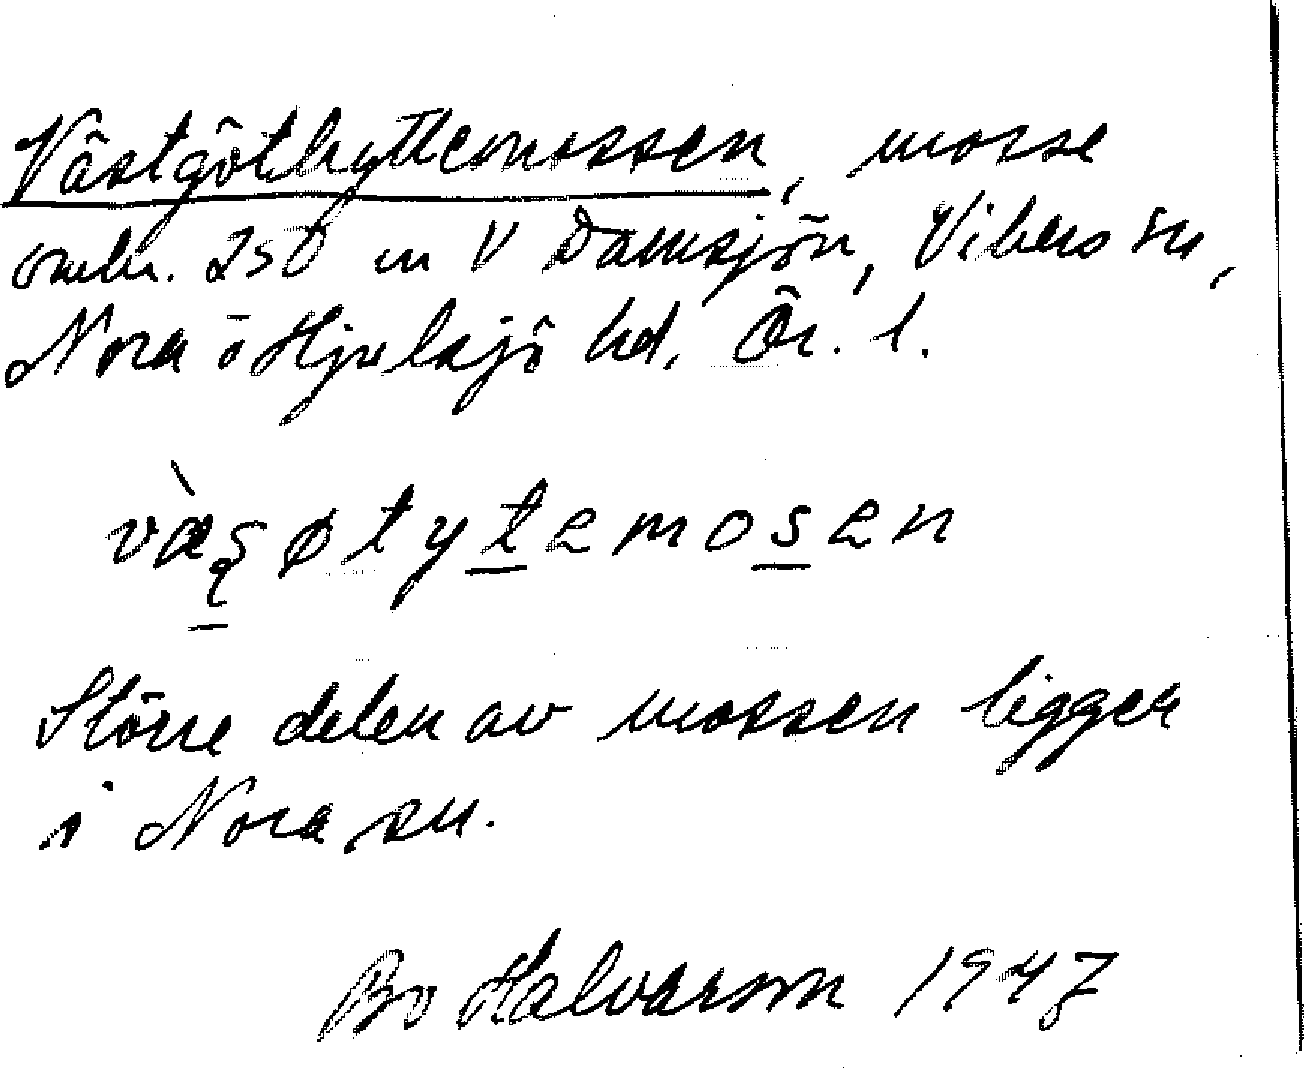 Västgöthyttemossen, mosse
omkr. 250 m V Damsjön, Vikers sn,
Nora o Hjulsjö hd, Ör. l.
væ̀søtytemosen
Större delen av mossen ligger
i Nora sn.
Bo Halvarson 1947